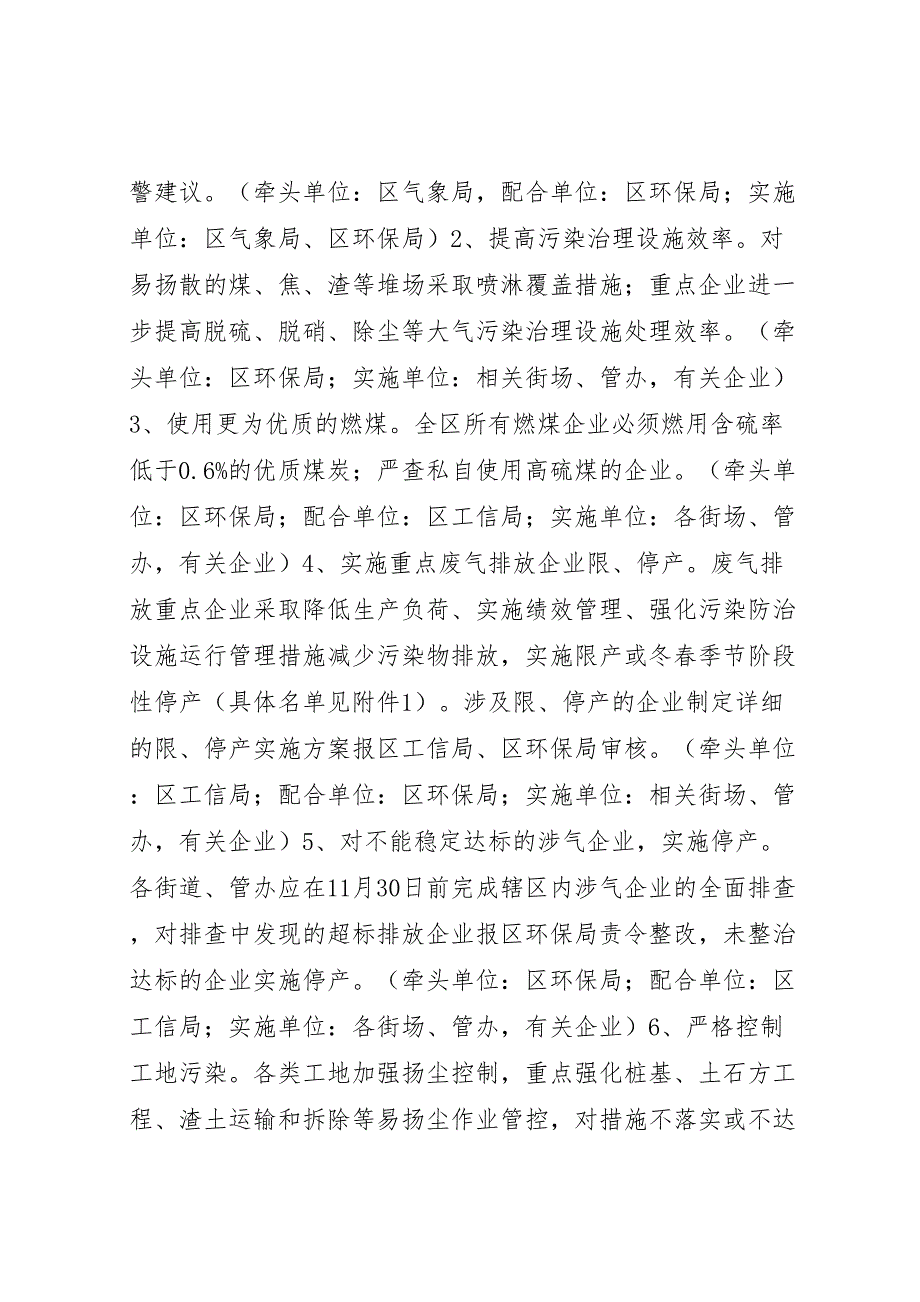 警建议。（牵头单位：区气象局，配合单位：区环保局；实施
单位：区气象局、区环保局）2、提高污染治理设施效率。对
易扬散的煤、焦、渣等堆场采取喷淋覆盖措施；重点企业进一
步提高脱硫、脱硝、除尘等大气污染治理设施处理效率。（牵
头单位：区环保局；实施单位：相关街场、管办，有关企业）
3、使用更为优质的燃煤。全区所有燃煤企业必须燃用含硫率
低于0.6%的优质煤炭；严查私自使用高硫煤的企业。（牵头单
位：区环保局；配合单位：区工信局；实施单位：各街场、管
办，有关企业）4、实施重点废气排放企业限、停产。废气排
放重点企业采取降低生产负荷、实施绩效管理、强化污染防治
设施运行管理措施减少污染物排放，实施限产或冬春季节阶段
性停产（具体名单见附件1）。涉及限、停产的企业制定详细
的限、停产实施方案报区工信局、区环保局审核。（牵头单位
：区工信局；配合单位：区环保局；实施单位：相关街场、管
办，有关企业）5、对不能稳定达标的涉气企业，实施停产。
各街道、管办应在11月30日前完成辖区内涉气企业的全面排查
，对排查中发现的超标排放企业报区环保局责令整改，未整治
达标的企业实施停产。（牵头单位：区环保局；配合单位：区
工信局；实施单位：各街场、管办，有关企业）6、严格控制
工地污染。各类工地加强扬尘控制，重点强化桩基、土石方工
程、渣土运输和拆除等易扬尘作业管控，对措施不落实或不达